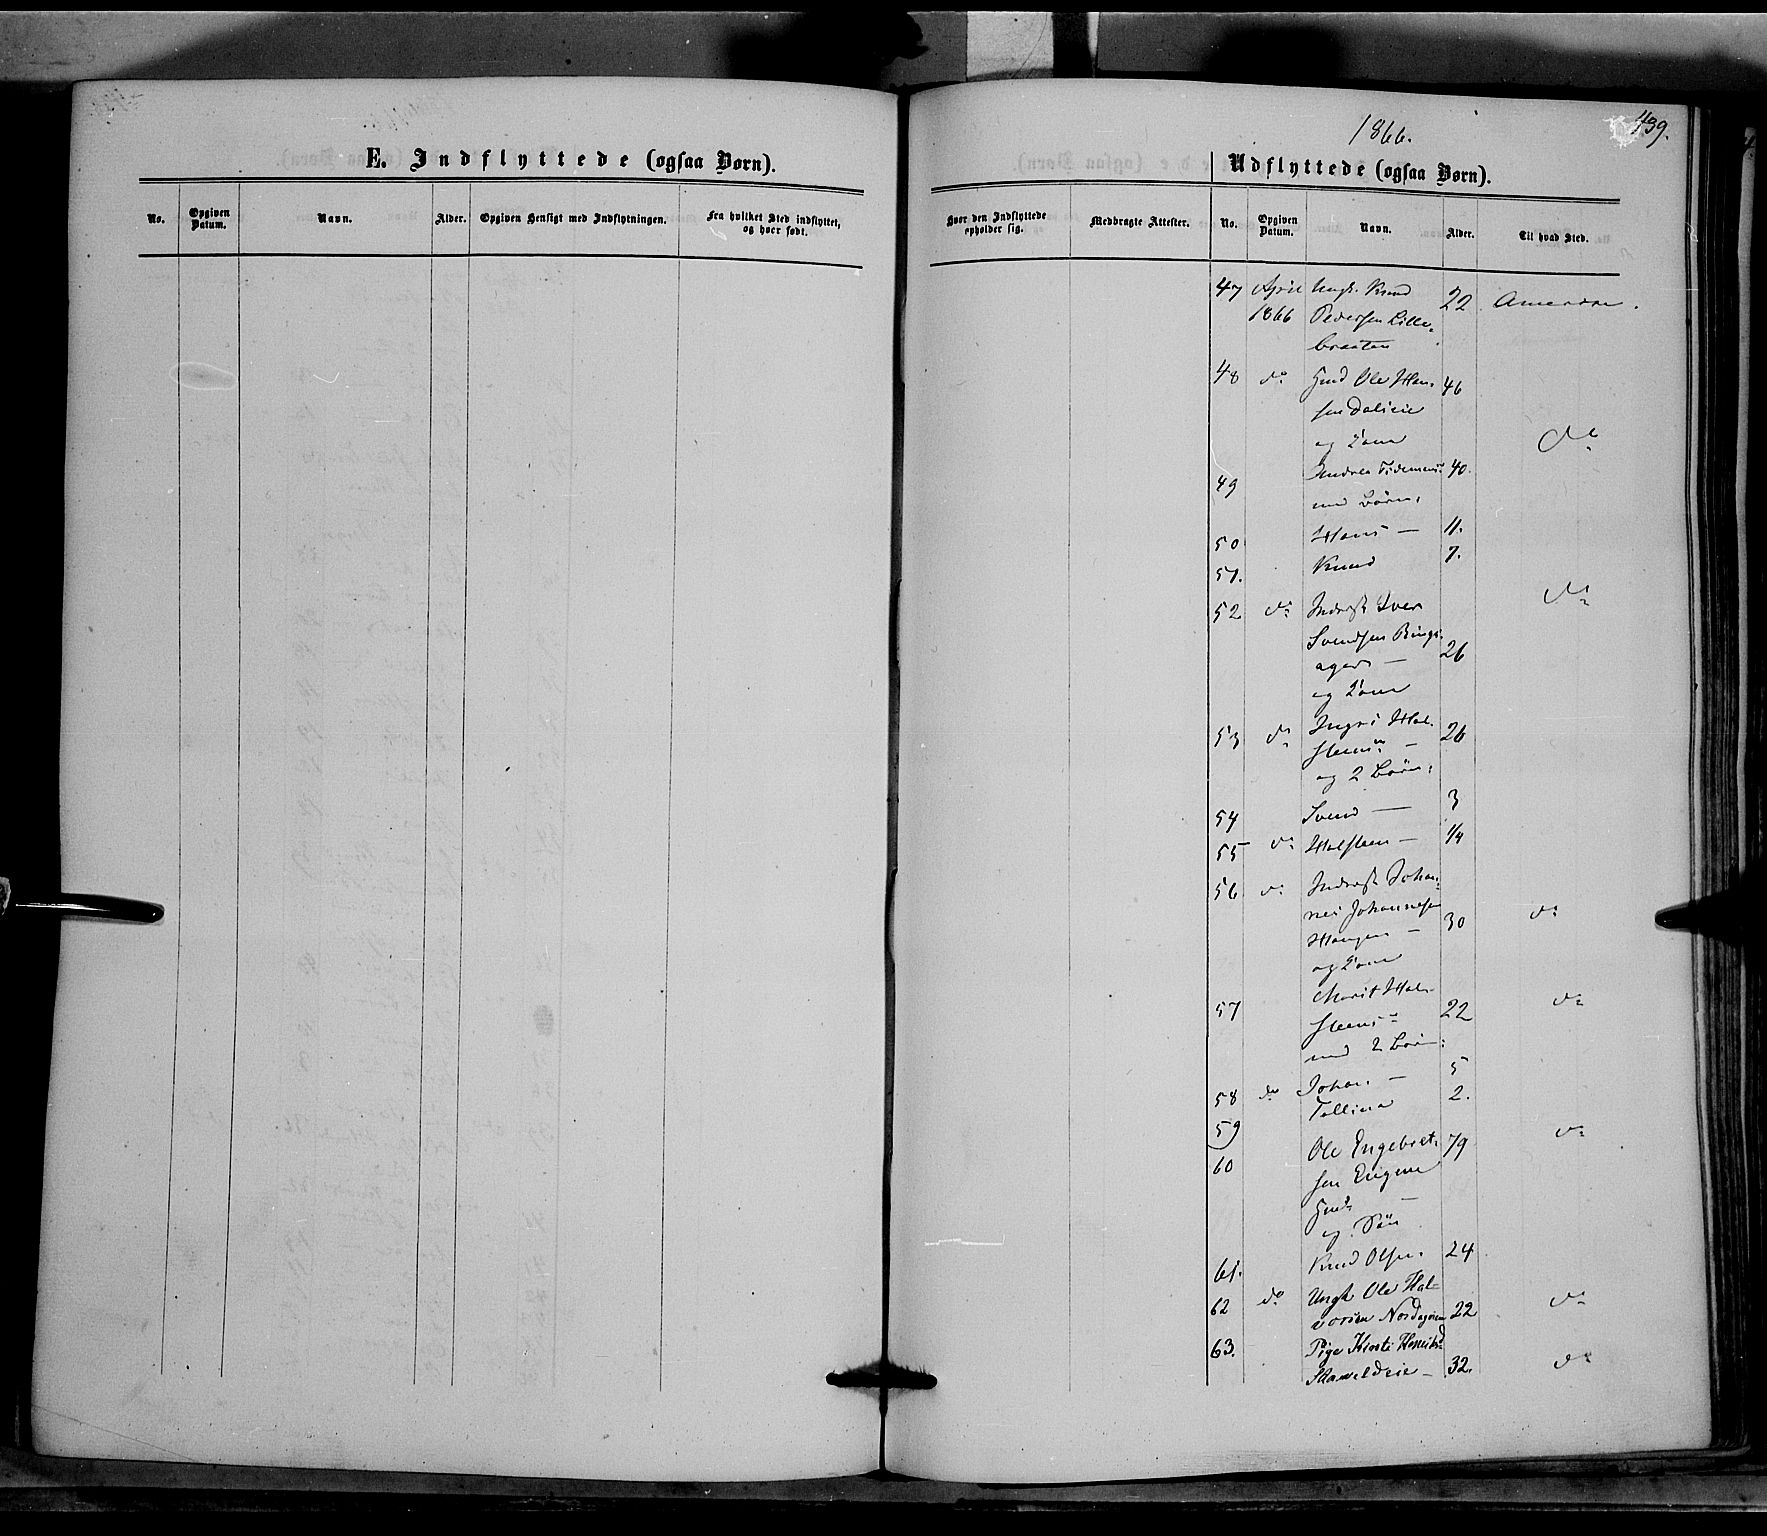 1866.
439.
E. Indflyttede (ogsaa Børn).
Udflyttede (ogsaa Børn).
No. Opgiven Datum. Navn. Alder. Opgiven Hensigt med Indflytningen. Fra hvilket Sted indflyttet, og hvor født.
Hvor den Indflyttede opholder sig. Medbragte Attester. No. Opgiven Datum. Navn. Alder. Til hvad Sted.
47 April Ungk. Knud
1866 Pedersen Lille- 22 Amerika.
braaten
48 do Gmd Ole Han- 46
sen Dalseie
og Kone do
49 Andrea 40.
med Børn:
50 Hans — 11.
51. Knud 7.
52 do Inderst Iver do
Svendsen Rings-
ager — 26
og Kone
53 do Ingri Hal- 26
steensd —
og 2 Børn:
54 Svend — 3
55 do Halsteen — 1/4
56 do Inderst Johan-
nes Johannesen 30 do
Haugen —
og Kone
57 Marit Hal- do
steensd 22
med 2 Børn:
58 do Johan — 5
59 Tollina 2.
60 Ole Engebret- 79 do
sen
Gmd —
og Søn
61. Knud Olsen. 24
62 do Ungk Ole Hal- do
vorsen 22
63. Pige Kirsti
32. do